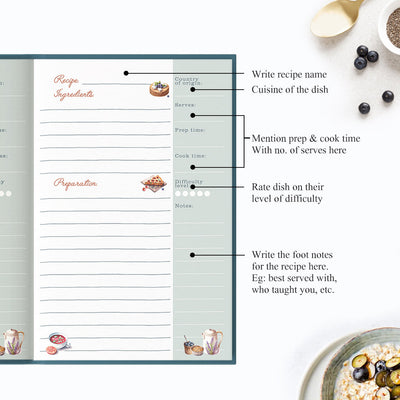 Recipe
Ingredients
Preparation
Country
of origin:
Serves:
Prep time:
Cook time:
Difficulty
level:
Notes:
Write recipe name
Cuisine of the dish
Mention prep & cook time
With no. of serves here
Rate dish on their
level of difficulty
Write the foot notes
for the recipe here.
Eg: best served with,
who taught you, etc.